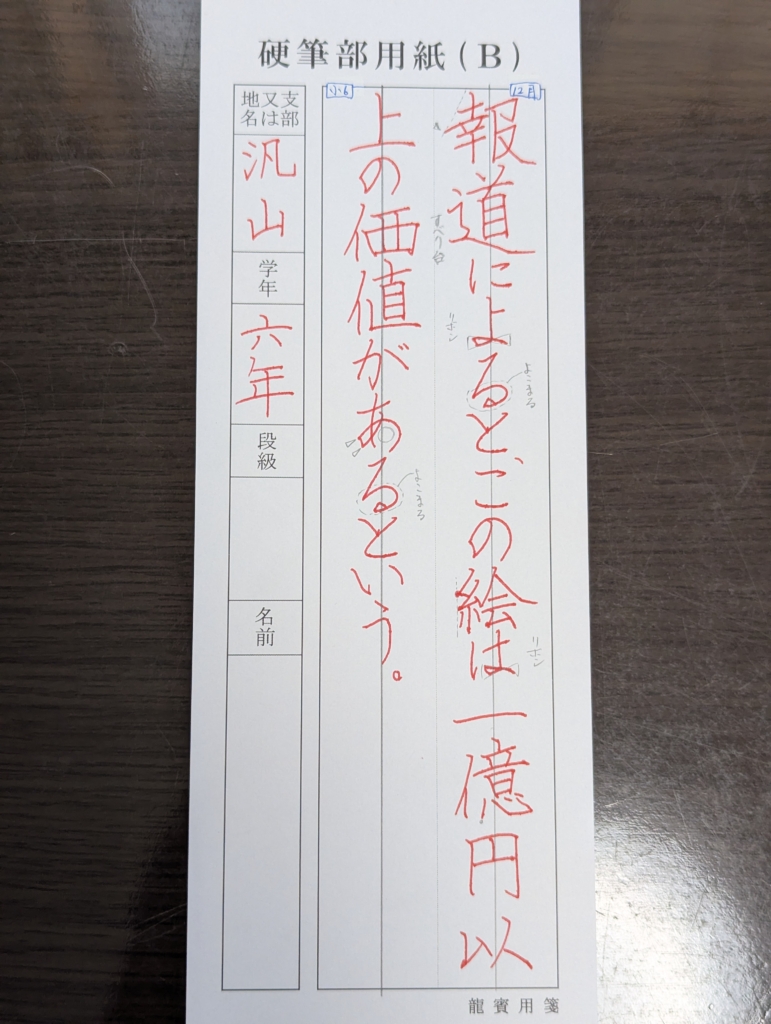 硬筆部用紙(B)
12月
小6
報道によるとこの絵は一億円以
上の価値があるという。
すべり台
リボン
よこまる
リボン
よこまる
支部
又は
地名
汎山
学年
六年
段級
名前
龍賓用箋